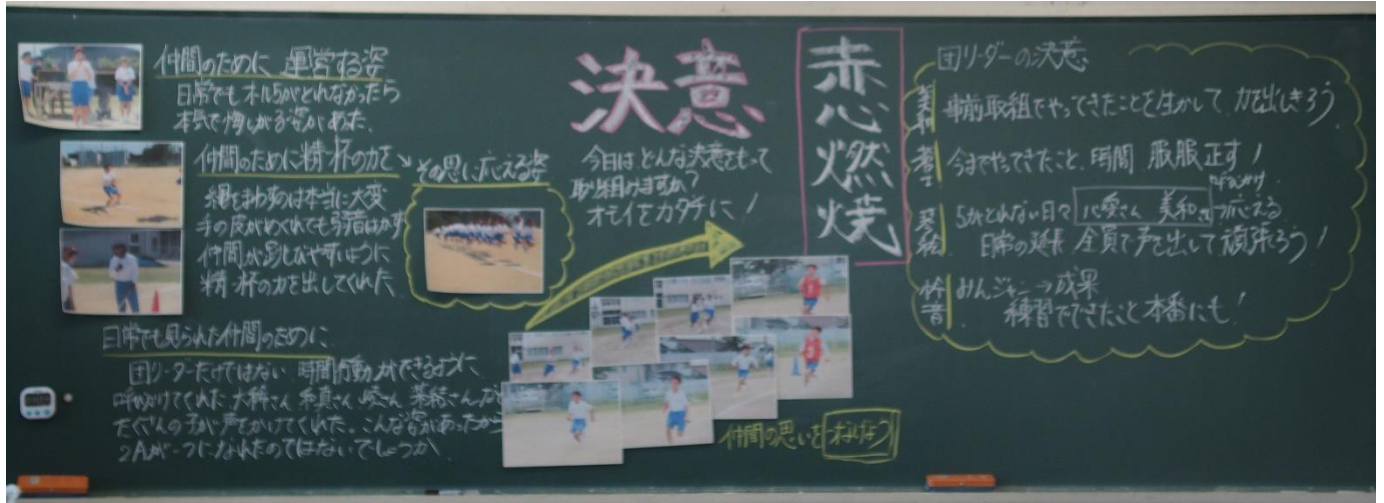 仲間のために運営する姿
日常でもオール5がとれなかったら
本気で悔しがる姿があった。
仲間のために精一杯の力を
縄をまわすのは本当に大変
手の皮がめくれても弱音はかず
仲間が跳びやすいように
精一杯の力を出してくれた
その思いに応える姿
日常でも見られた仲間のために
団リーダーだけではない 時間行動ができるように
呼びかけてくれた
たくさんの子が声をかけてくれた。こんな姿があったから
2Aが一つになれたのではないでしょうか
決意
今日はどんな決意をもって
取り組みますか?
オモイをカタチに!
仲間の思いをつなげよう
赤心燃焼
団リーダーの決意
美和 事前取組でやってきたことを生かして 力を出しきろう
今までやってきたこと、時間 服 正す!
呼びかけ
5がとれない日々 心愛さん 美和さん 応える
日常の延長 全員で声を出して頑張ろう!
みんジャン→成果
練習でできたこと本番にも!